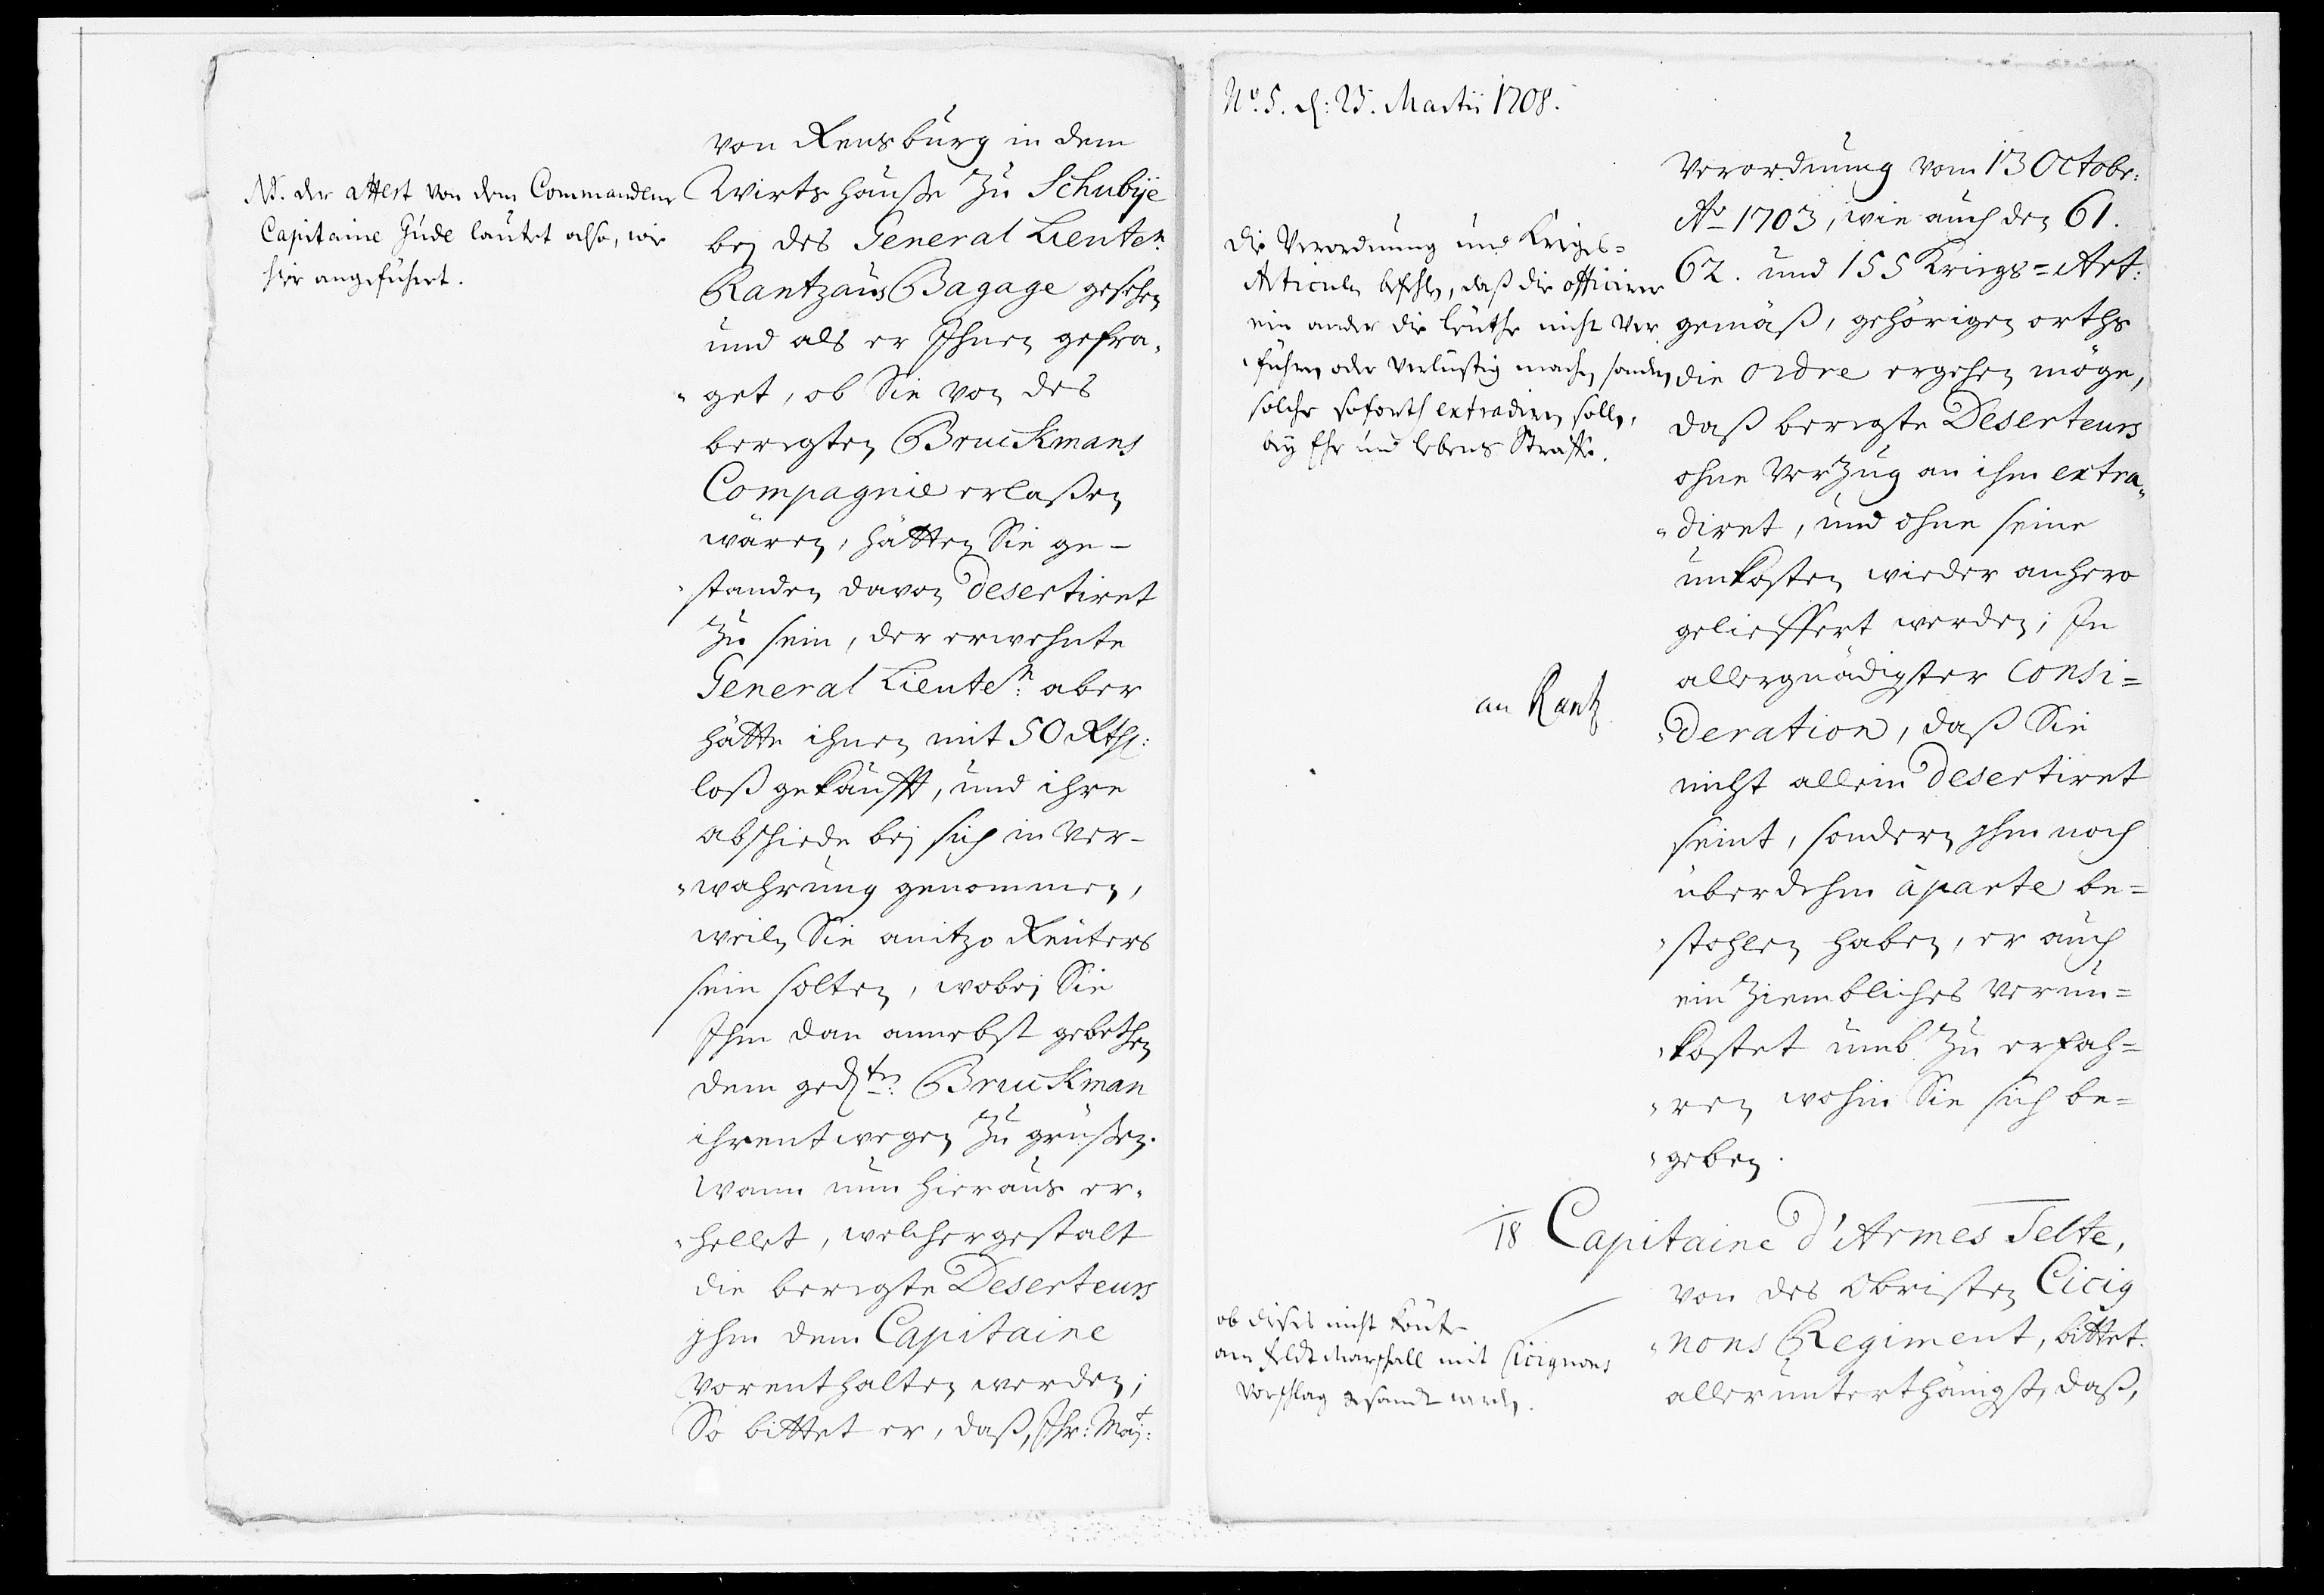 NB. der attest von dem Commandeur
Capitaine Gude lautet also, wie
hier angeführt.
von Rensburg in dem
Wirtshauße zu Schubÿe
beÿ des General Lieutn:
Rantzaus Bagage gesehen
und als er Ihnen gefra-
get, ob Sie von des
beregten Bruckmans
Compagnie erlaßen
wären, hätten Sie ge-
standen davon desertiret
zu sein, der erwehnte
General Lieutn: aber
hätte ihnen mit 50 Rthl:
loß gekaufft, und ihre
abschiede beÿ sich in Ver-
wahrung genommen,
weiln Sie anitzo Reuters
sein solten, wobeÿ Sie
Ihm dan annebst gebethen
dem gedtn: Bruckman
ihrentwegen zu grüßen.
Wann nun hieraus er-
hellet, welchergestalt
die beregte Deserteurs
Ihm dem Capitaine
vorenthalten werden;
So bittet er, daß, Ihr: Maÿt:
No. 5. d: 25. Martii 1708.
Die Verordnung und Kriges-
Articuln befehln, daß die officirer
ein ander die leuthe nicht ver-
führen oder verlustig machen, sondern
solche soforth extradiren solln,
beÿ Ehr und lebens Straffe.
an Rantz
ob dieses nicht könte
am Feldt Marschall mit Cicignons
Vorschlag gesandt werden.
Verordnung vom 13 Octobr:
Ao 1703, wie auch den 61.
62. und 155 Kriegs-Art:
gemäß, gehörigen orths
die ordre ergehen möge,
daß beregte Deserteurs
ohne Verzug an ihm extra-
diret, und ohne seine
unkosten wieder anhero
gelieffert werden; In
allergnädigster Consi-
deration, daß Sie
nicht allein desertiret
seint, sondern Ihm noch
überdehm àparte be-
stohlen haben, er auch
ein ziembliches verun-
kostet umb zu erfah-
ren wohin Sie sich be-
geben.
18 Capitaine d'Armes Telte,
von des Obristen Cicig
nons Regiment, bittet
allerunterthänigst, daß,